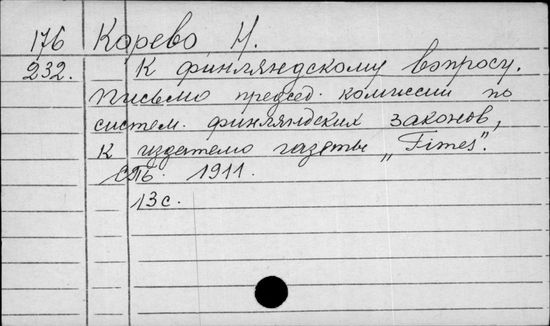 176 Корево Н.
232. К финляндскому вопросу.
Письмо председ. комиссии по
систем. финляндских законов,
к издателю газеты „Times".
СПБ. 1911.
13 с.